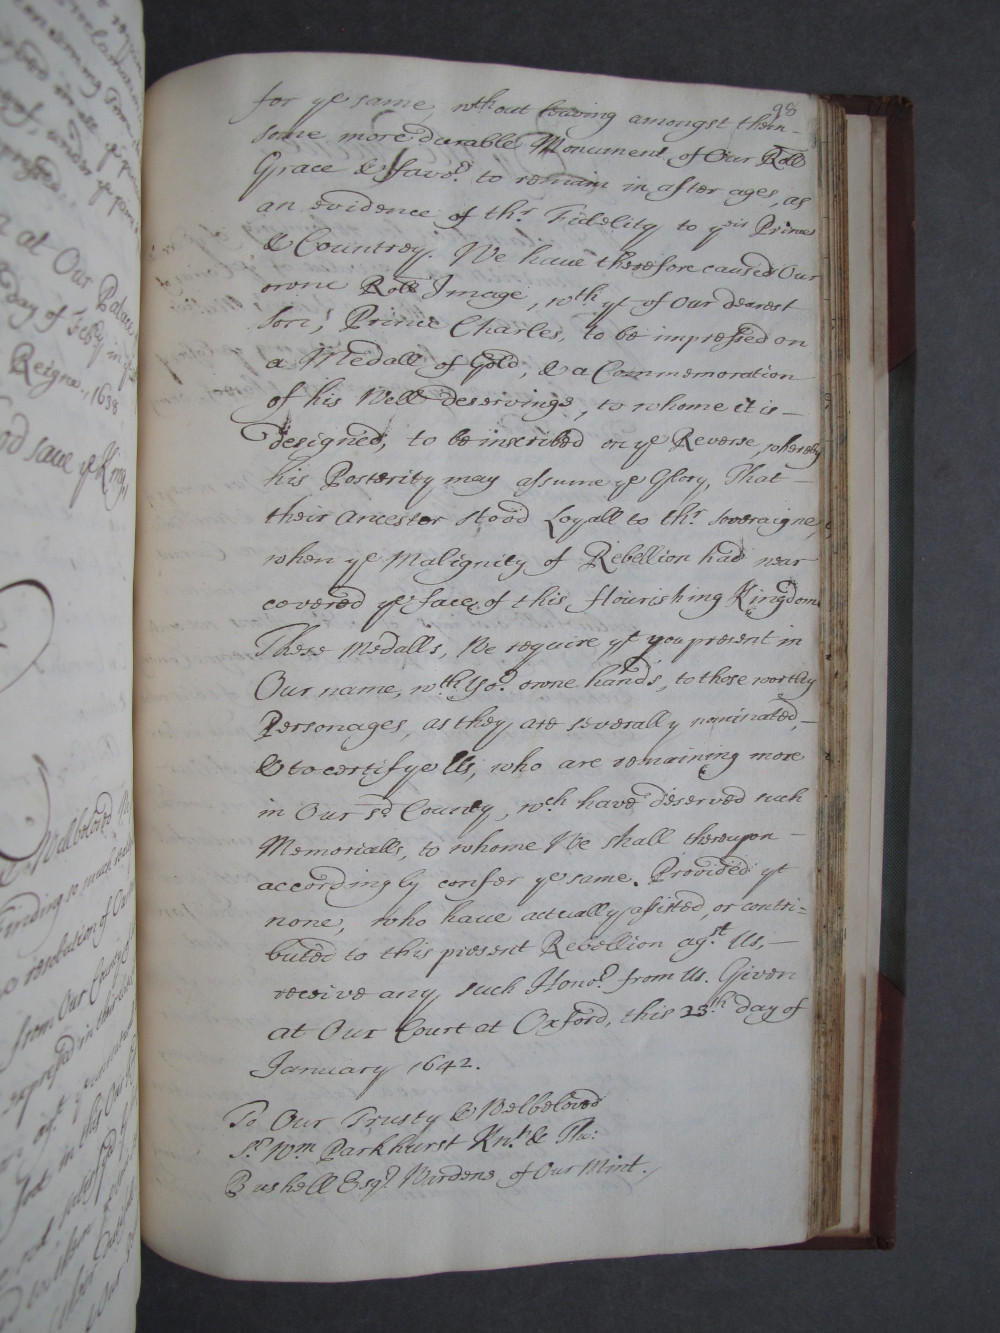 98
for ye same, wthout leaving amongst them
some more durable Monument of Our Roll
Grace & favor. to remain in after ages, as
an evidence of thr. Fidelity to yeir Prince
& Countrey. We have therefore caused Our
owne Roll Image, wth yt of Our dearest
Son, Prince Charles, to be impressed on
a Medall of Gold, & a Commemoration
of his Well deservings, to whome it is
designed, to be inscribed on ye Reverse, whereby
his Posterity may assume ye Glory, That
their Ancestor stood Loyall to thr. soveraigne,
when ye Malignity of Rebellion had near
covered ye face of this flourishing Kingdom
These Medalls, We require yt you present in
Our name, wth Yor. owne hands, to those worthy
Personages, as they are severally nominated,
& to certifye Us, who are remaining more
in Our sd County, wch have deserved such
Memorialls, to whome We shall thereupon
accordingly confer ye same. Provided yt
none, who have actually assisted, or contri=
buted to this present Rebellion agst. Us,
receive any such Honor. from Us. Given
at Our Court at Oxford, this 23th day of
January 1642.
To Our Trusty & Welbeloved
Sr. Wm Parkhurst Knt. & Tho:
Bushell Esqr. Wardens of Our Mint.
at Our Palace
day of Feby in
Reigne, 1638
God save ye King
Wellbeloved We
finding so much
resolution of Our
from Our County of
expressed in this